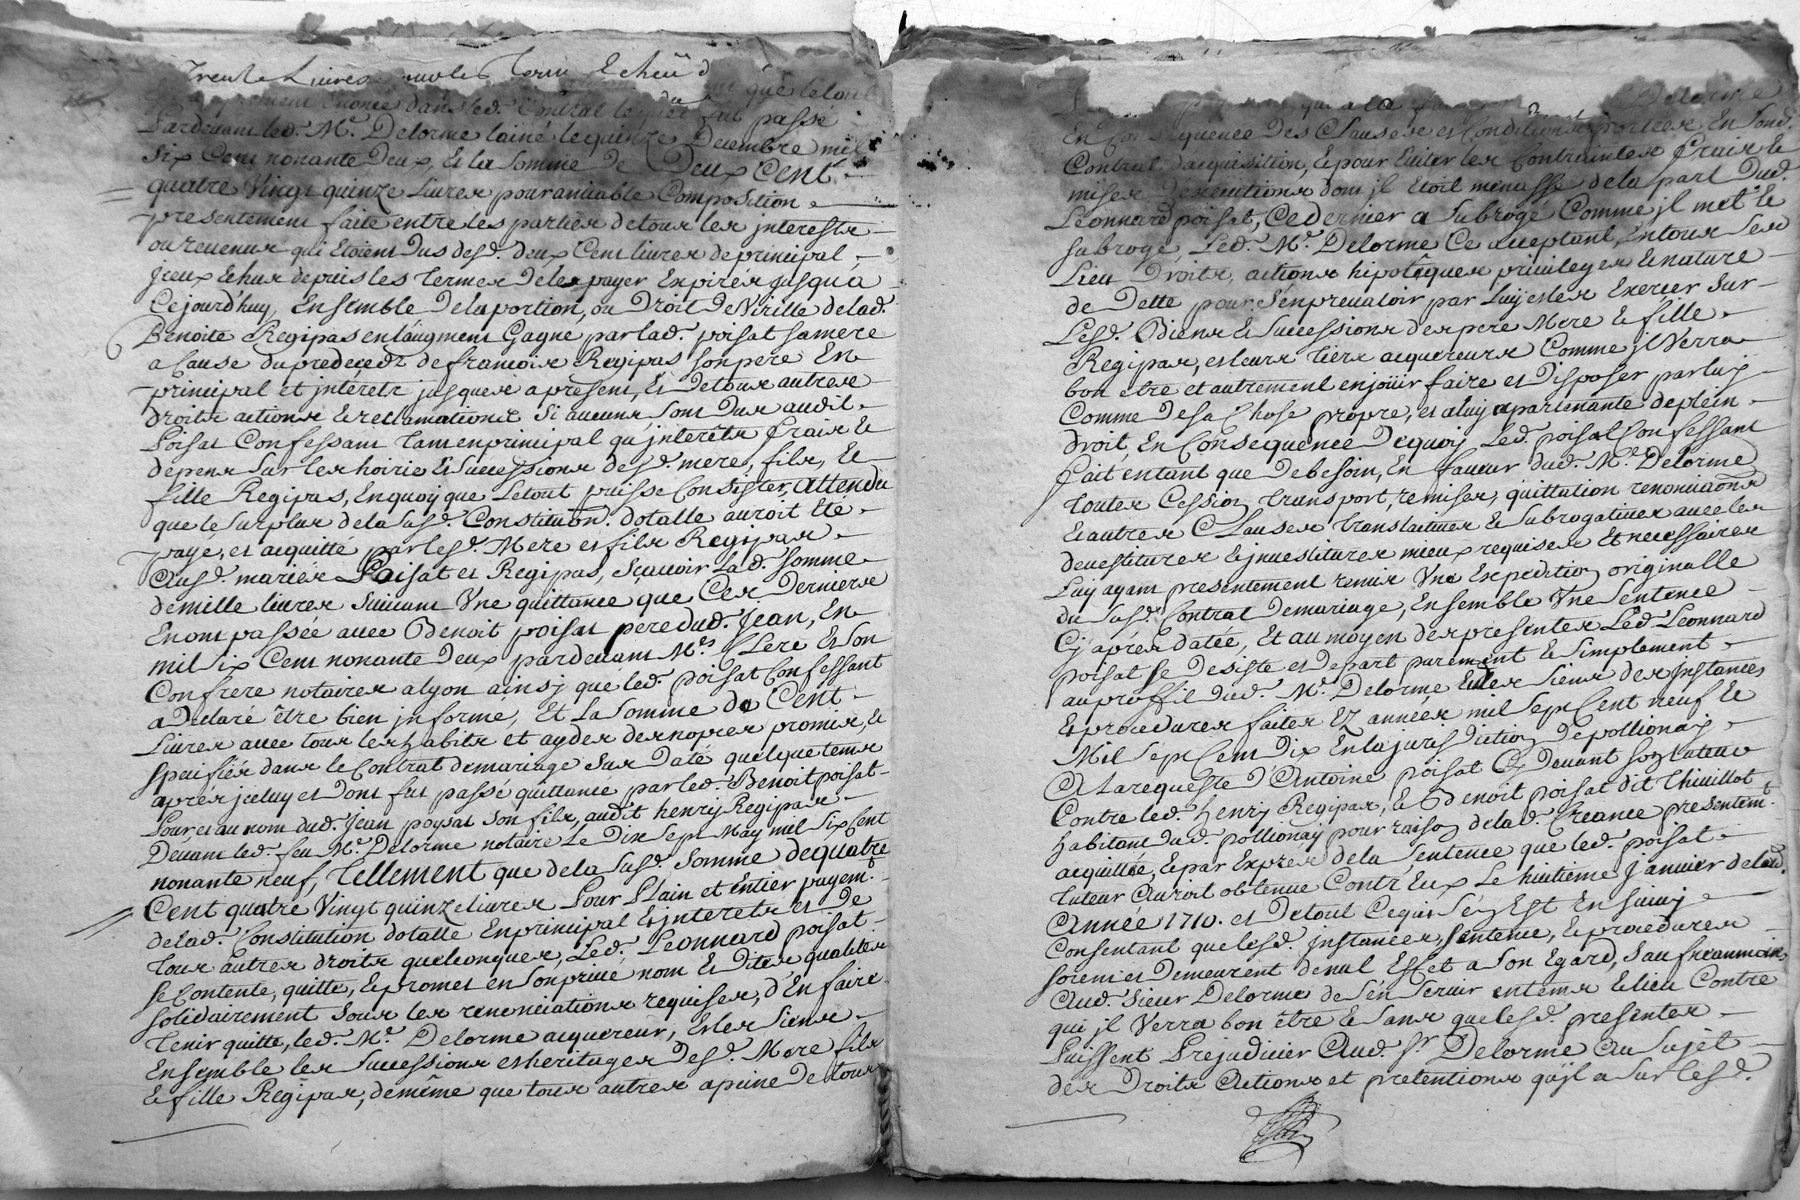 Trente Livres pour les Term Echeu d
enoncé dans led. Contrat que le tout
fut passé
Pardevant led. Mr. Delorme laîné le quinze Decembre mil
six Cent nonante Deux, Et la Somme de Deux Cent
quatre Vingt quinze Livres pour amiable Composition
presentement faite entre les parties de tous les jnterests
ou revenus qui Etoient Dus desd. deux Cent livres de principal
jceux Echus depuis les termes de les payer Expirés jusqu'à
Cejourd'huy, Ensemble De la portion, ou Droit De Virille de lad.
Benoite Regipas en l'augment Gagné par lad. poisat sa mere
a Cause du predecedz de francois Regipas son pere En
principal et jnterets jusques a present, Et De tous autres
droits actions & reclamations Si aucuns sont Dus audit
Poisat Confessant tant en principal qu'jnterêts frais &
depens sur les hoirie & Successions desd. mere, fils, Et
fille Regipas, En quoy que Le tout puisse Consister, Attendu
que le Surplus de la Susd. Constitution. dotalle auroit Eté
payé, et acquitté par lesd. Mere et fils Regipas
Ausd. mariés Poisat et Regipas, sçavoir Lad. Somme
de mille livres suivant Une quittance que Ces Derniers
En ont passée avec Benoit poisat pere dud. Jean, En
mil six Cent nonante Deux pardevant Mes Clerc Et Son
Confrere notaires a lyon ainsj que led. poisat Confessant
a Declaré être bien jnformé, Et La Somme de Cent
Livres avec tous les habits et aydes des nopces promis, &
speifiés dans le Contrat de mariage Sus Daté quelque tems
aprés jceluy et dont fut passé quittance par led. Benoit poisat
Pour et au nom dud. Jean poysat son fils, audit henry Regipas
Devant led. feu Mr. Delorme notaire Le Dix Sept May mil Six Cent
nonante neuf, Tellement que de la Susd. Somme De quatre
Cent quatre Vingt quinze livres Pour Plain et Entier payemt.
de lad. Constitution dotalle En principal & jnterets et De
tous autres droits quelconques, Led. Leonnard poisat
se Contente, quitte, & promet en son privé nom Et Dites qualités
solidairement Sous les renonciations requises, d'En faire
tenir quitte, led. Mr. Delorme acquereur, & les Siens
Ensemble les Successions et heritages Desd. Mere fils
& fille Regipas, de même que tous autres a peine De tous
Delorme
En Consequence Des Clauses et Conditions portées En Sond.
Contrat d'acquisition, & pour Eviter les Contraintes frais &
mises D'executions dont jl Etoit menassé de la part Dud.
Leonnard poisat, Ce dernier a Subrogé Comme jl met &
subroge Led. Mr. Delorme Ce acceptant, En tous Ses
Lieu Droits, actions hipotêques privileges & nature
de Dette pour S'en prevaloir par Luy et les Exercer Sur
Lesd. Biens & Successions des pere Mere & fille
Regipas, et leurs tiers acquereurs Comme jl Verra
bon etre et autrement en joüir faire et Disposer par luy
Comme De sa Chose propre, et a luy apartenante de plein
droit, En Consequence De quoy Led. poisat Confessant
fait en tant que De besoin, En faveur dud. Mr. Delorme
toutes Cession, transport, remises, quittation renonciaons
& autres Clauses translatives & Subrogatives avec les
devestitures & jnvestitures mieux requises Et necessaires
Luy ayant presentement remis Une Expedition originalle
du Susd. Contrat de mariage, Ensemble Une Sentence
Cy aprés datée, Et au moyen des presentes Led. Leonnard
poisat Se Desiste et Depart purement & Simplement
au proffit dud. Mr. Delorme & les Siens des jnstances
& procedures faites Ez années mil Sept Cent neuf &
Mil Sept Cent Dix En la jurisdiction De pollionay
A La requeste D'Antoine poisat Cy Devant Son tuteur
Contre led. henry Regipas, & Benoit poisat dit thivillot
habitant Dud. pollionay pour raison de lad. Creance presentemt.
acquittée, & par Exprés de la Sentence que led. poisat
tuteur Auroit obtenue Contr'Eux Le huitième Janvier de lad.
Année 1710. et De tout Ce qui S'en Est En Suivy
Consentant que lesd. jnstances, Sentence, & procedures
soient et Demeurent de nul Effet a Son Egard, sauf neanmoins
Aud. Sieur Delorme de S'en Servir en tems & lieu Contre
qui jl Verra bon être & Sans que lesd. presentes
Puissent Prejudicier Aud. Sr. Delorme Au Sujet
des Droits Actions et pretentions qu'jl a Sur Lesd.